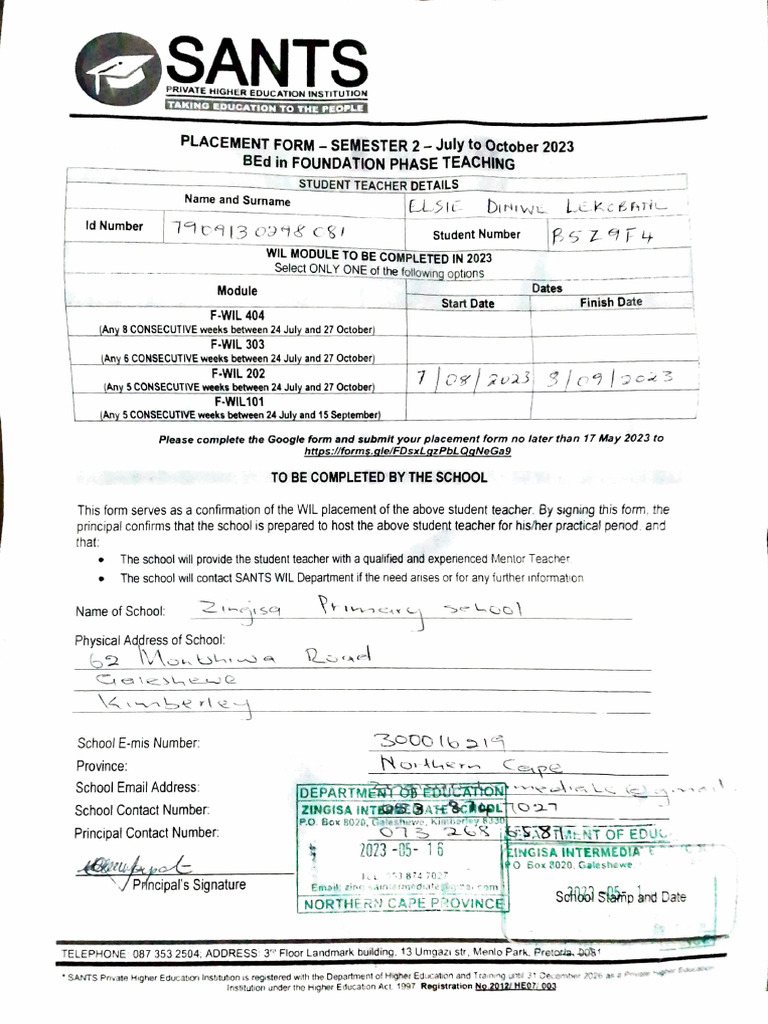 SANTS
PRIVATE HIGHER EDUCATION INSTITUTION
TAKING EDUCATION TO THE PEOPLE
PLACEMENT FORM – SEMESTER 2 – July to October 2023
BEd in FOUNDATION PHASE TEACHING
STUDENT TEACHER DETAILS
Name and Surname ELSIE DINIWE
Id Number 7909130298081 Student Number B5Z9F4
WIL MODULE TO BE COMPLETED IN 2023
Select ONLY ONE of the following options
Module Dates
Start Date Finish Date
F-WIL 404
(Any 8 CONSECUTIVE weeks between 24 July and 27 October)
F-WIL 303
(Any 6 CONSECUTIVE weeks between 24 July and 27 October)
F-WIL 202
(Any 5 CONSECUTIVE weeks between 24 July and 27 October) 7/08/2023 8/09/2023
F-WIL101
(Any 5 CONSECUTIVE weeks between 24 July and 15 September)
Please complete the Google form and submit your placement form no later than 17 May 2023 to
https://forms.gle/FDsxLgzPbLQgNeGa9
TO BE COMPLETED BY THE SCHOOL
This form serves as a confirmation of the WIL placement of the above student teacher. By signing this form, the
principal confirms that the school is prepared to host the above student teacher for his/her practical period, and
that:
• The school will provide the student teacher with a qualified and experienced Mentor Teacher
• The school will contact SANTS WIL Department if the need arises or for any further information
Name of School: Zingisa Primary school
Physical Address of School:
62 Road
Galeshewe
Kimberley
School E-mis Number: 300016219
Province: Northern Cape
School Email Address:
School Contact Number: 053 874 7027
Principal Contact Number: 073 268 6587
DEPARTMENT OF EDUCATION
ZINGISA INTERMEDIATE SCHOOL
P.O. Box 8020, Galeshewe, Kimberley 8330
2023 -05- 16
TEL 053 874 7027
NORTHERN CAPE PROVINCE
DEPARTMENT OF EDUC
ZINGISA INTERMEDIA
P O Box 8020, Galeshewe
Principal's Signature
School Stamp and Date
TELEPHONE: 087 353 2504; ADDRESS: 3rd Floor Landmark building, 13 Umgazi str, Menlo Park, Pretoria, 0081
* SANTS Private Higher Education Institution is registered with the Department of Higher Education and Training until 31 December 2026 as a Private Higher Education
Institution under the Higher Education Act, 1997 Registration No.2012/ HE07/ 003